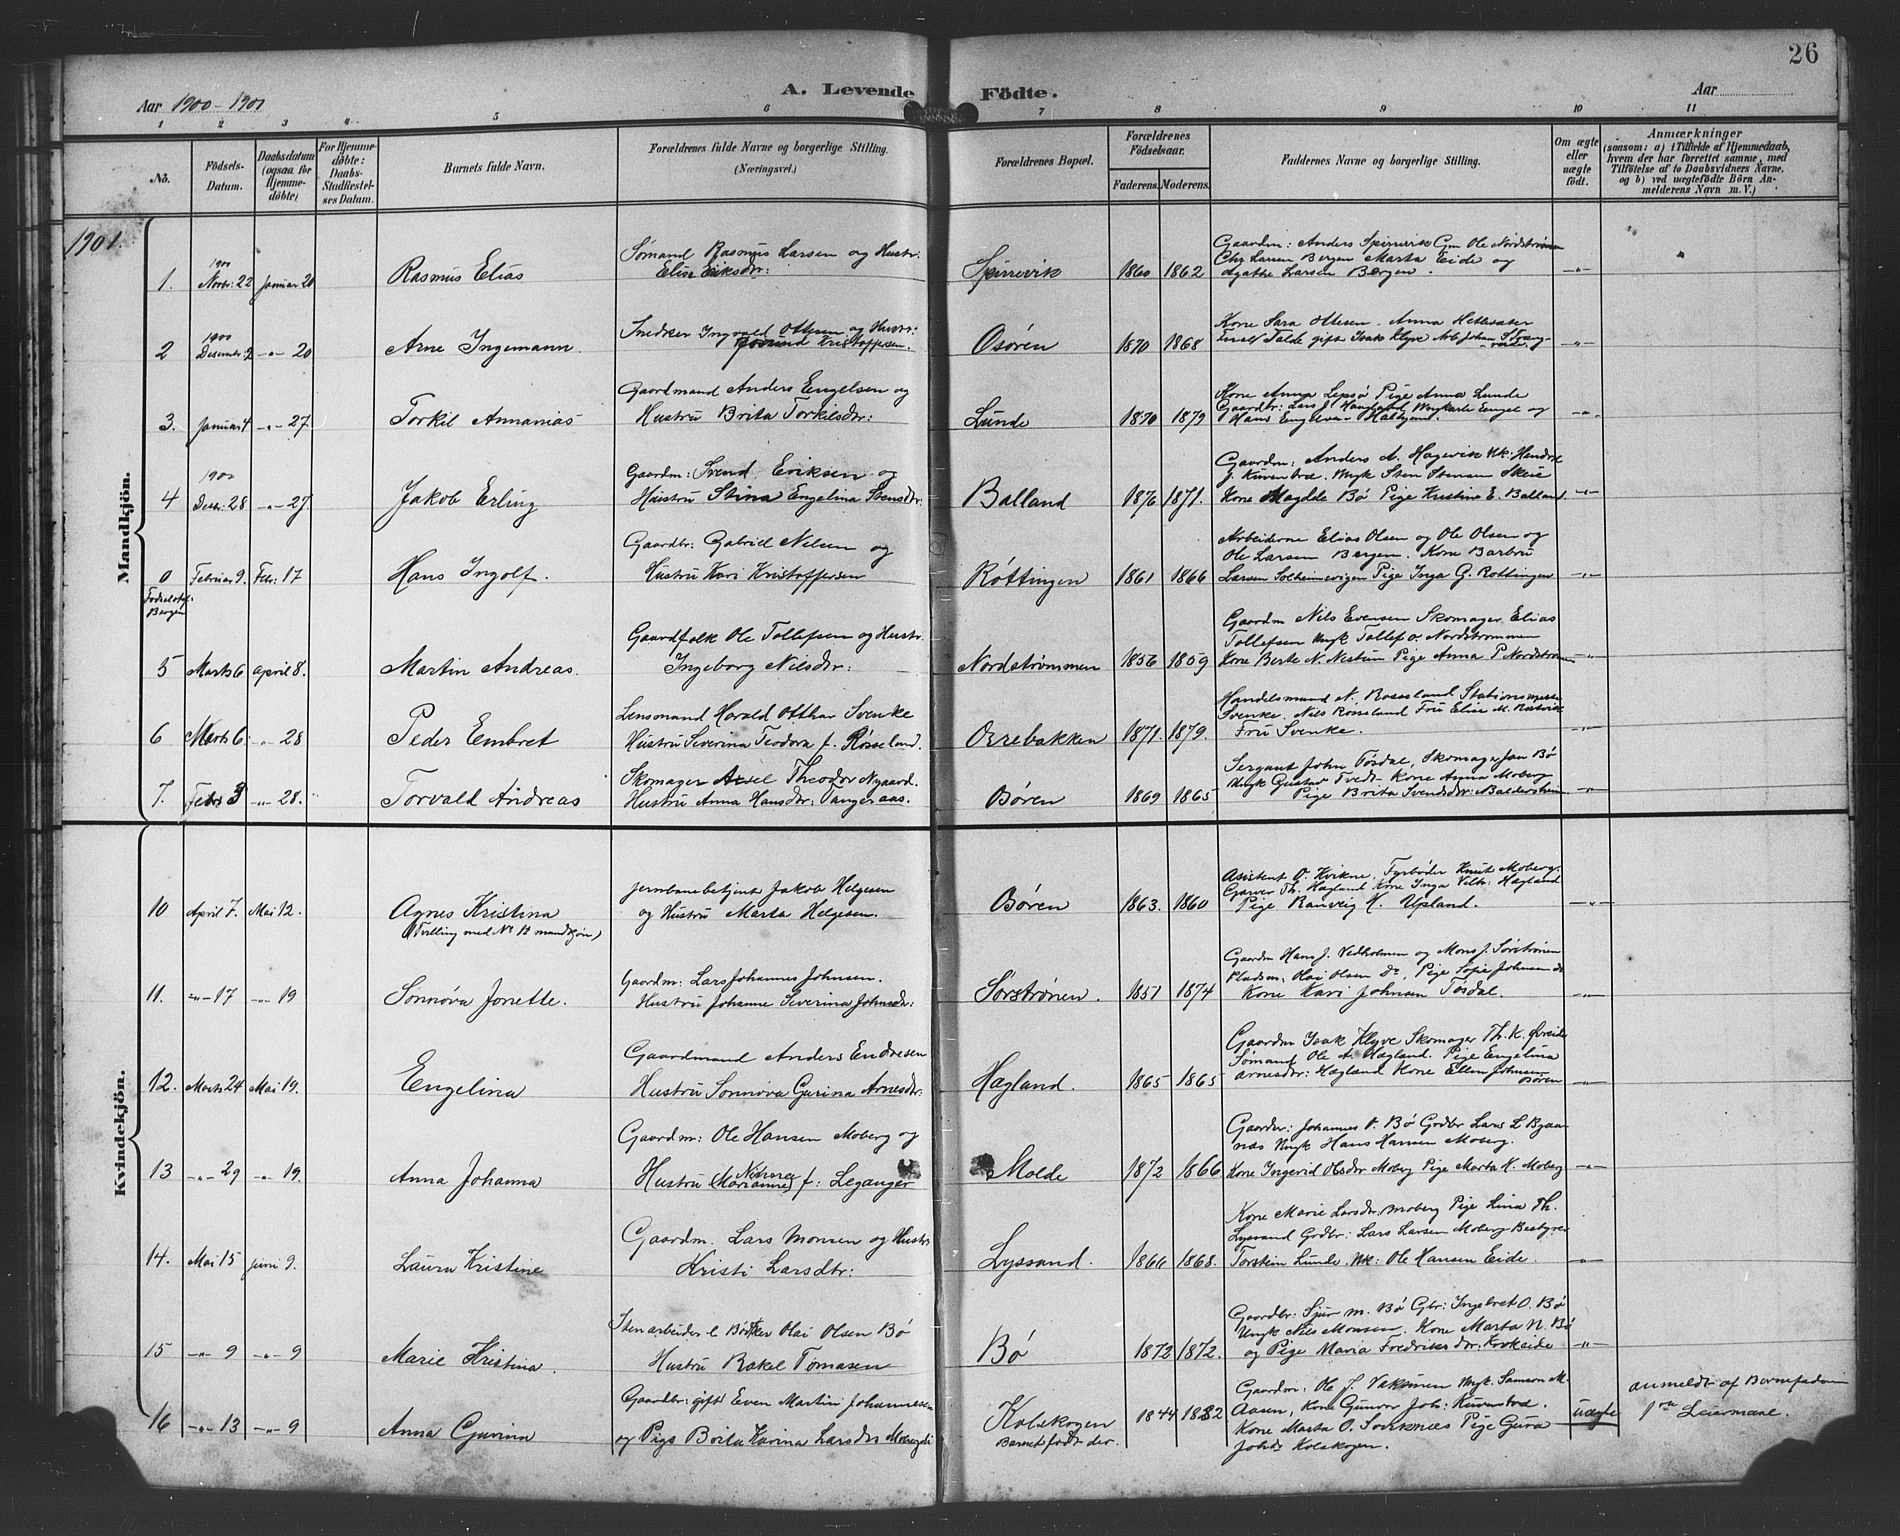 26
Aar 1900-1901
A. Levende Födte.
Aar
1 2 3 4 5 6 7 8 9 10 11
No.
Födsels-Datum.
Daabsdatum (ogsaa for Hjemme-döbte)
For Hjemme-döbte: Daabs-Stadfæstel-ses Datum.
Barnets fulde Navn.
Forældrenes fulde Navne og borgerlige Stilling. (Næringsvei.)
Forældrenes Bopæl.
Forældrenes Födselsaar.
Faderens. Moderens.
Faddernes Navne og borgerlige Stilling.
Om ægte eller uægte födt.
Anmærkninger (saasom: a) i Tilfælde af Hjemmedaab, hvem der har forrettet samme, med Tilföielse af to Daabsvidners Navne. og b) ved uægtefödte Börn An-melderens Navn m. V.)
1901.
Mandkjön.
1. 1900 Novbr: 22 Januar 20 Rasmus Elias
Sømand Rasmus Larsen og Hustr: Elise Eriksdr:
Spirrevik 1860 1862
Gaardm: Anders Spirrevik Gm Ole Nordstrønen
Chr Larsen Bergen Marta Eide og
Agathe Larsen Bergen. -"-
2 1900 Desember 2 -"- 20 Arne Ingemann.
Snedker Ingvald Ottesen og Hustr: Kristoffersen.
Osøren 1870 1868
Kone Sara Ottesen. Anna
Talde gift Isak Klyve Arb Johan -"-
3. Januar 4 -"- 27. Torkel Annanias
Gaardmand Anders Engelsen og
Hustru Brita Torkilsdr:
Lunde 1870 1879
Kone Anna Lepsø Pige Anna Lunde
Gaardbr: Lars J. Haugland Ungkarle Engel og
Hans -"-
4 1900 Decbr: 28 -"- 27. Jakob Erling
Gaardm: Svend Eriksen og
Hustru Stina Engelina Stensdr:
Balland 1876 1871.
Gaardm: Anders A. Hagevik Uk:
J. Kuventræ. Ungk Sten Stensen Skeie
Kone Magdle Bø Pige Kristine E. Balland -"-
0 Fødselsstif. Bergen Februar 9. Febr: 17 Hans Ingolf.
Gaardbr: Gabriel Nilsen og
Hustru Kari Kristoffersen
Røttingen 1861 1866
Arbeiderne Elias Olsen og Ole Olsen og
Ole Larsen Bergen. Kone Barbru
Larsen Solheimsvigen Pige Inga G. Røttingen -"-
5 Marts 6 April 8. Martin Andreas.
Gaardfolk Ole Tollefsen og Hustr.
Ingeborg Nilsdr:
Nordstrømmen 1856 1859
Gaardm Nils Evensen Skomager Elias
Tollefsen Ungk Tollef O. Nordstrømmen
Kone Berte N. Nestun Pige Anna P Nordstrømen -"-
6 Marts 6. -"- 28 Peder Embret
Lensmand Harald Otthar Svenke
Hustru Severina Teodora f. Røseland.
Ovrebakken 1871. 1879.
Handelsmand N. Røseland Stationsmester
Svenke. Nils Røseland Fru Elise M.
Fru Svenke. -"-
7. Febr 3 -"- 28. Torvald Andreas
Skomager Axel Theodor Nygaard.
Hustru Anna Hansdr: Tangeraas.
Børen 1869 1865
Sergant John Tøsdal, Skomager Jan Bø
Ungk Gustav Tvedt Kone Anna Moberg
Pige Brita Svendsdr: Baldersheim -"-
Kvindekjön.
10 April 7. Mai 12. Agnes Kristina
(Tvilling med No 12 mandkjøn)
Jernbanebetjent Jakob Helgesen
og Hustru Marta Helgesen.
Børen 1863. 1860
Asistent O. Kvikne, Fyrbøder Knut Moberg.
Garver Th. Hægland Kone Inga Vilh: Hægland
Pige Ranveig K. Upland. -"-
11. -"- 17 -"- 19 Sønnøva Jonette.
Gaardm: Lars Johannes Johnsen.
Hustru Johanne Severina Johnsdr:
Sørstrønen. 1851 1874
Gaardm Hans J. Vedholmen og Mons J. Sørstrønen
Pladsm. Olai Olsen Do, Pige Sofie Johnsen do
Kone Kari Johnsen Tøsdal. -"-
12. Marts 24 Mai 19. Engelina
Gaardmand Anders Endresen
Hustru Sønnøva Gurina Arnesdr:
Hægland. 1865 1865
Gaardm Isak Klyve Skomager Th. K. Øvreide
Sømand Ole A. Hægland. Pige Engelina
Arnesdr: Hægland Kone Ellen Johnsen
Osøren -"-
13 -"- 29 -"- 19. Anna Johanna
Gaardm: Ole Hansen Moberg og
Hustru (Marianne) f: Leganger
Molde 1872 1866
Gaardbr: Johannes O. Bø Grdbr Lars L
Ungk Hans Hansen Moberg.
Kone Ingerid Olsdr Moberg Pige Marta K. Moberg -"-
14. Mai 15 Juni 9. Laura Kristine
Gaardm. Lars Monsen og Hustr:
Kristi Larsdtr:
Lyssand. 1866 1868.
Kone Marie Larsdr. Moberg Pige Lina Th.
Lyssand Grdbr: Lars Larsen Moberg Bestyrer
Torstein Lunde. Uk: Ole Hansen Eide. -"-
15 -"- 9 -"- 9 Marie Kristina
Stenarbeider & Bødker Olai Olsen Bø
Hustru Rakel Tomasen
Bø 1872 1872.
Gaardbr: Sjur M. Bø Gbr: Ingebret O. Bø
Ungk Nils Monsen. Kone Marta N. Bø
og Pige Maria Fredriksdr: Krokeide -"-
16 -"- 13 -"- 9 Anna Gurina
Gaardbr: gift Even Martin Johannessen
og Pige Brita Karina Larsdr
Kolskogen
Barnet født der.
1844 1882
Gaardm: Ole J. Ungk. Samson M.
Aasen, Kone Gunvor Joh: Kuventræ.
Kone Marta O. Pige Gura
Johsdr Kolskogen.
Uægte
anmeldt af Barnefaderen
1ste Leiermaal.